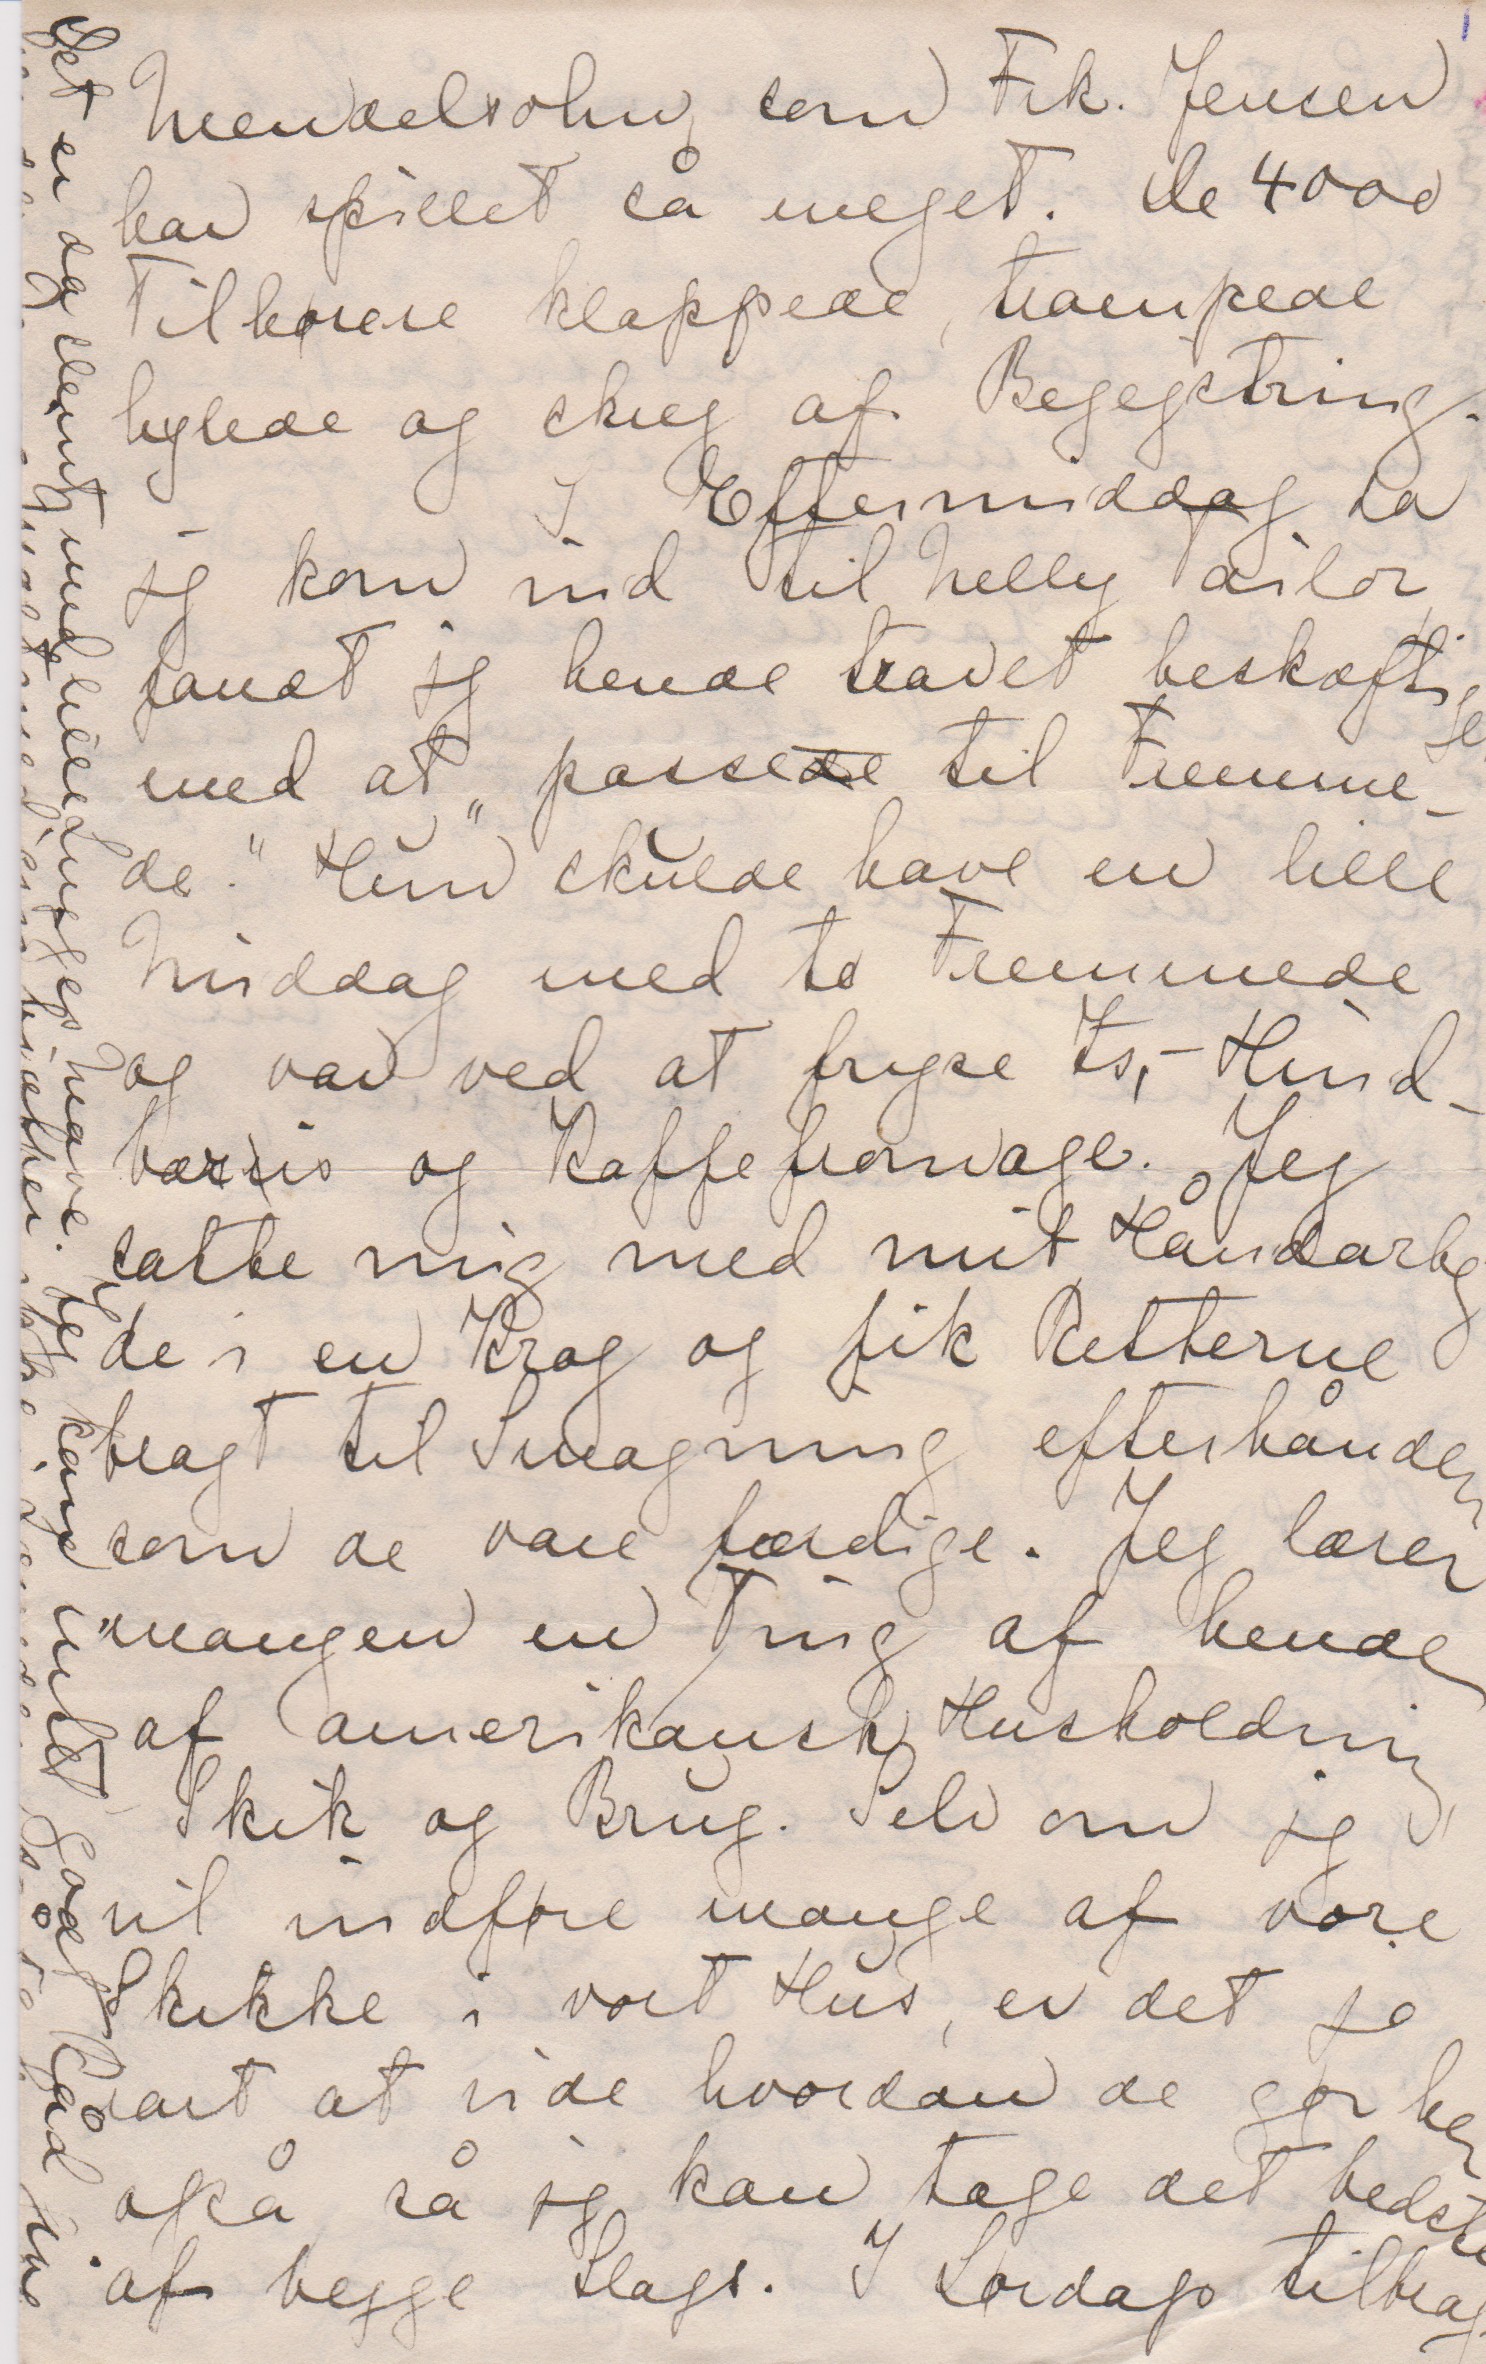 Mendelsohn, som Frk. Jensen
har spillet så meget. De 4000
Tilhørere klappede, trampede
hylede og skreg af Begejstring.
I Eftermiddag da
jeg kom ind til Nelly Tailor,
fandt jeg hende travet beskæftiget
med at „passede til Fremme-
de." Hun skulde have en lille
Middag med to Fremmede
og var ved at fryse Is, - Hind-
bæris og Kaffefromage. Jeg
satte mig med mit Håndarbej
de i en Krog og fik Retterne
bragt til Smagning efterhånden
som de vare færdige. Jeg lærer
mangen en Ting af hende
af amerikansk Husholdning,
Skik og Brug. Selv om jeg
vil indføre mange af vore
Skikke i vort Hus, er det jo
rart at vide hvordan de gør her
også så jeg kan tage det bedste
af begge Slags. I Lørdags tilbrag
Det er da slemt med lille Inges Mave. Jeg kan intet godt Råd give